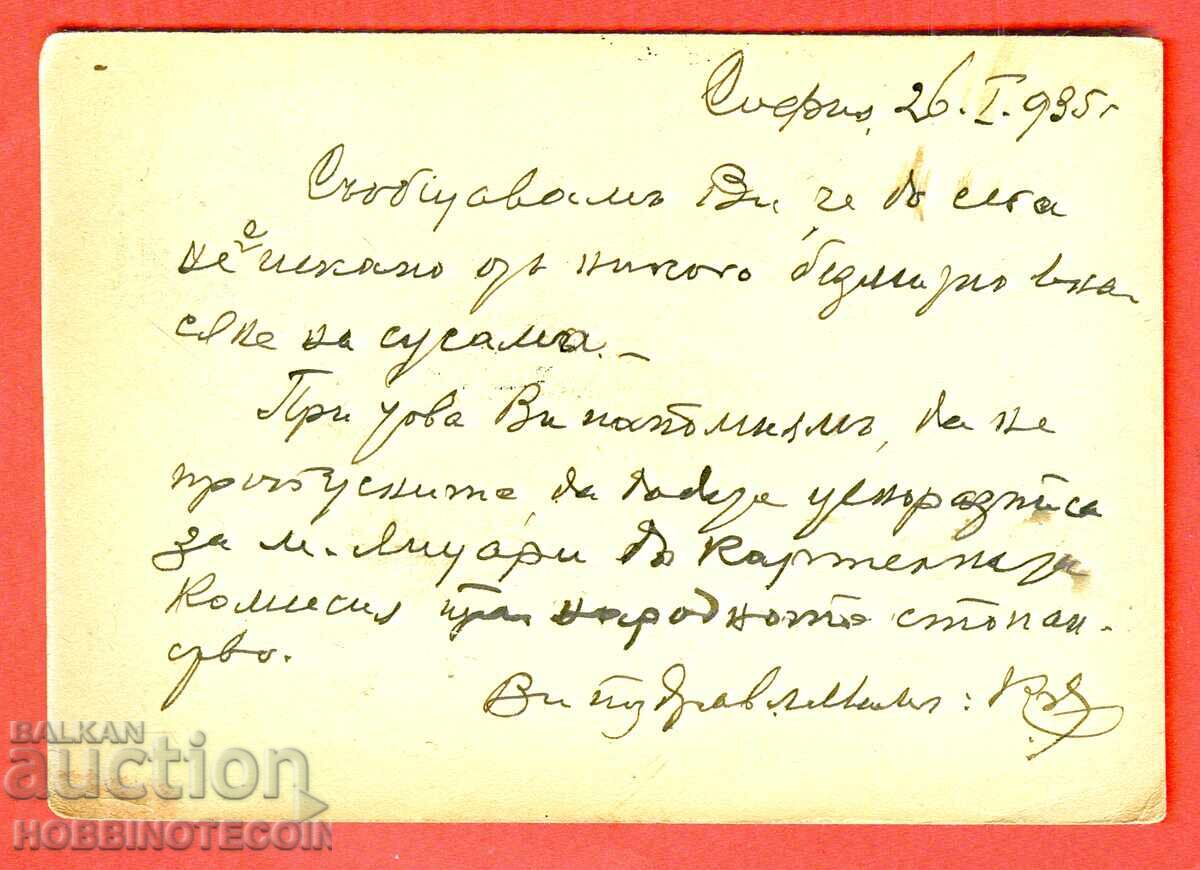 София, 26.I.935г
Съобщавамъ Ви, че до сега
не е искано отъ никого безмитно вна-
сяне на сусама.-
При това Ви напомнямъ, да не
пропусните, да
за м. Януари до Картелната
Комисия при народното стопан-
ство.
Ви поздравлявамъ:
BALKAN
auction
HOBBINOTECOIN